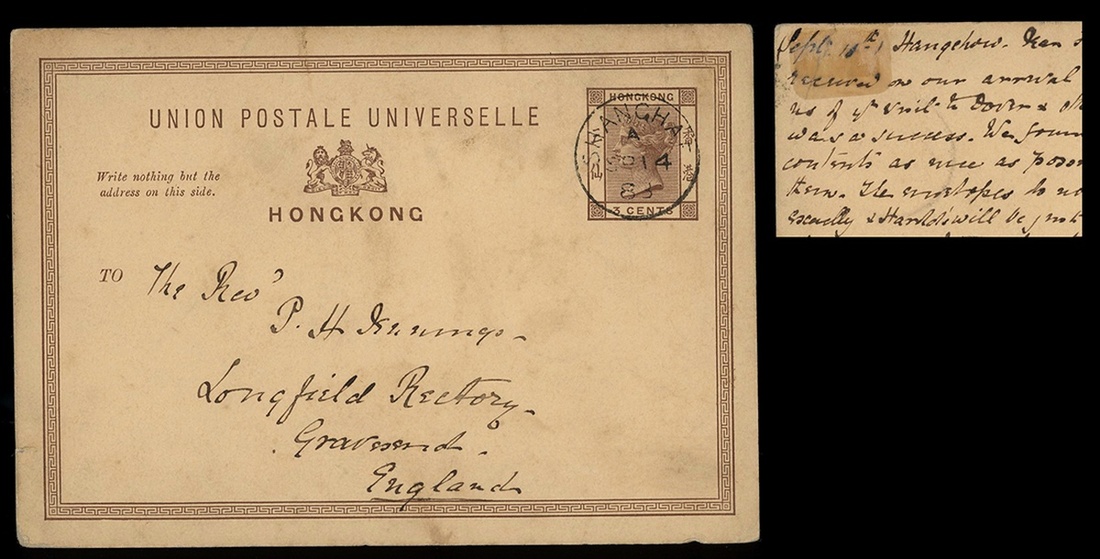 UNION POSTALE UNIVERSELLE
Write nothing but the
address on this side.
HONGKONG
HONGKONG
3 CENTS
SHANGHAI
A
SP 14
83
TO
The Revd
P. H. Jennings.
Longfield Rectory.
Gravesend
England
Sept. 10th Hangchow.
received on our arrival
was a success. We foun
contents as nice as
them. The envelopes to
exactly & Harold's will be just